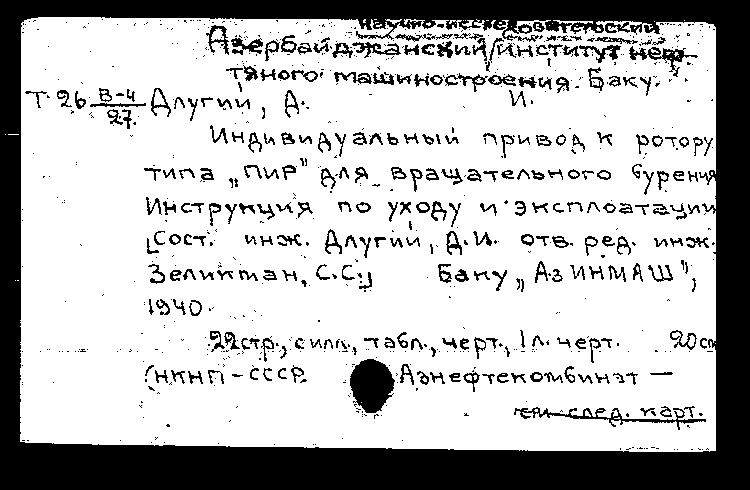 научно-исследовательский
Азербайджанский институт неф-
тяного машиностроения. Баку.
Т26 В-4/27. Длугий, Д. И.
Индивидуальный привод к ротору
типа „ПИР" для вращательного бурения
Инструкция по уходу и эксплоатации
[Сост. инж. Длугий, Д.И. отв. ред. инж.
Зеликман, С.С.] Баку „АзИНМАШ",
1940.
22стр., с илл., табл., черт., 1л. черт. 20см
(НКНП-СССР. Азнефтекомбинат —
см след. карт.